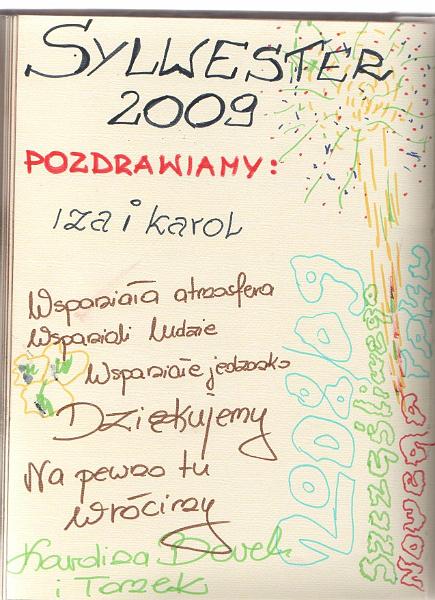 SYLWESTER
2009
POZDRAWIAMY:
Iza i Karol
Wspaniała atmosfera
Wspaniali ludzie
Wspaniałe jedzonko
Dziękujemy
Na pewno tu
wrócimy
i Tomek
2008/09
SZCZĘŚLIWEGO
NOWEGO